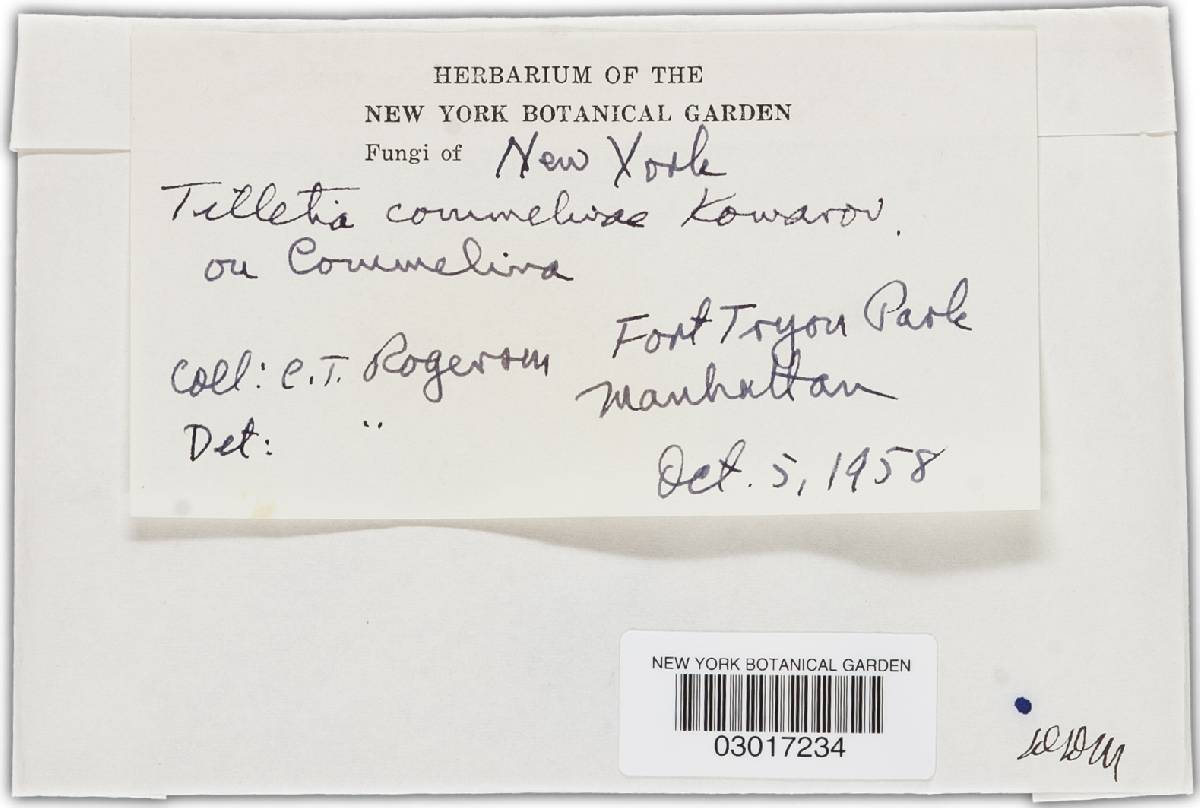 HERBARIUM OF THE
NEW YORK BOTANICAL GARDEN
Fungi of New York
Tilletia commelinae Komarov.
on Commelina
Coll: C.T. Rogerson
Det: "
Fort Tryon Park
Manhattan
Oct. 5, 1958
NEW YORK BOTANICAL GARDEN
03017234